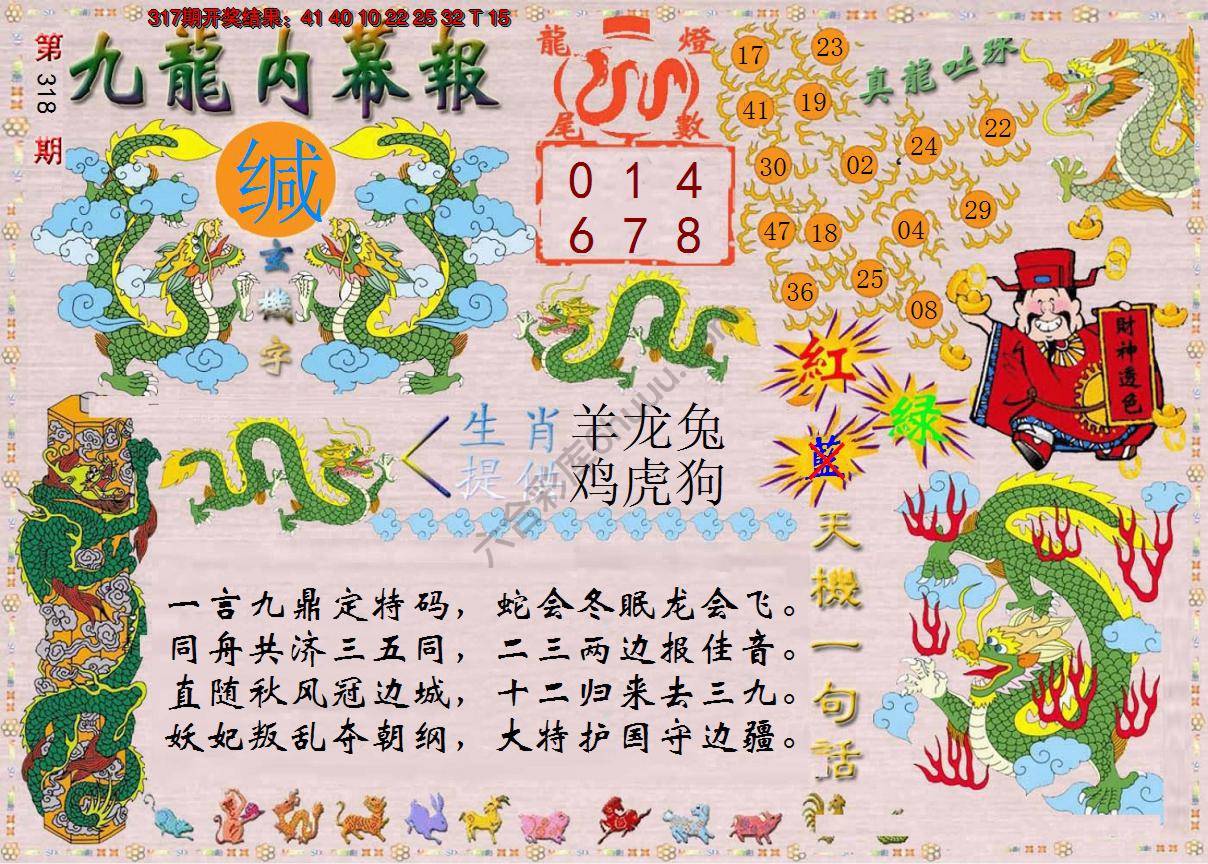 317期开奖结果：41 40 10 22 25 32 T 15
第318期
九龍内幕報
缄
玄機字
龍燈
尾數
0 1 4
6 7 8
真龍吐珠
17 23
41 19
24 22
30 02
29
47 18 04
25
36 08
財神透色
紅
綠
藍
生肖 羊龙兔
提供 鸡虎狗
天機一句話
一言九鼎定特码，蛇会冬眠龙会飞。
同舟共济三五同，二三两边报佳音。
直随秋风冠边城，十二归来去三九。
妖妃叛乱夺朝纲，大特护国守边疆。